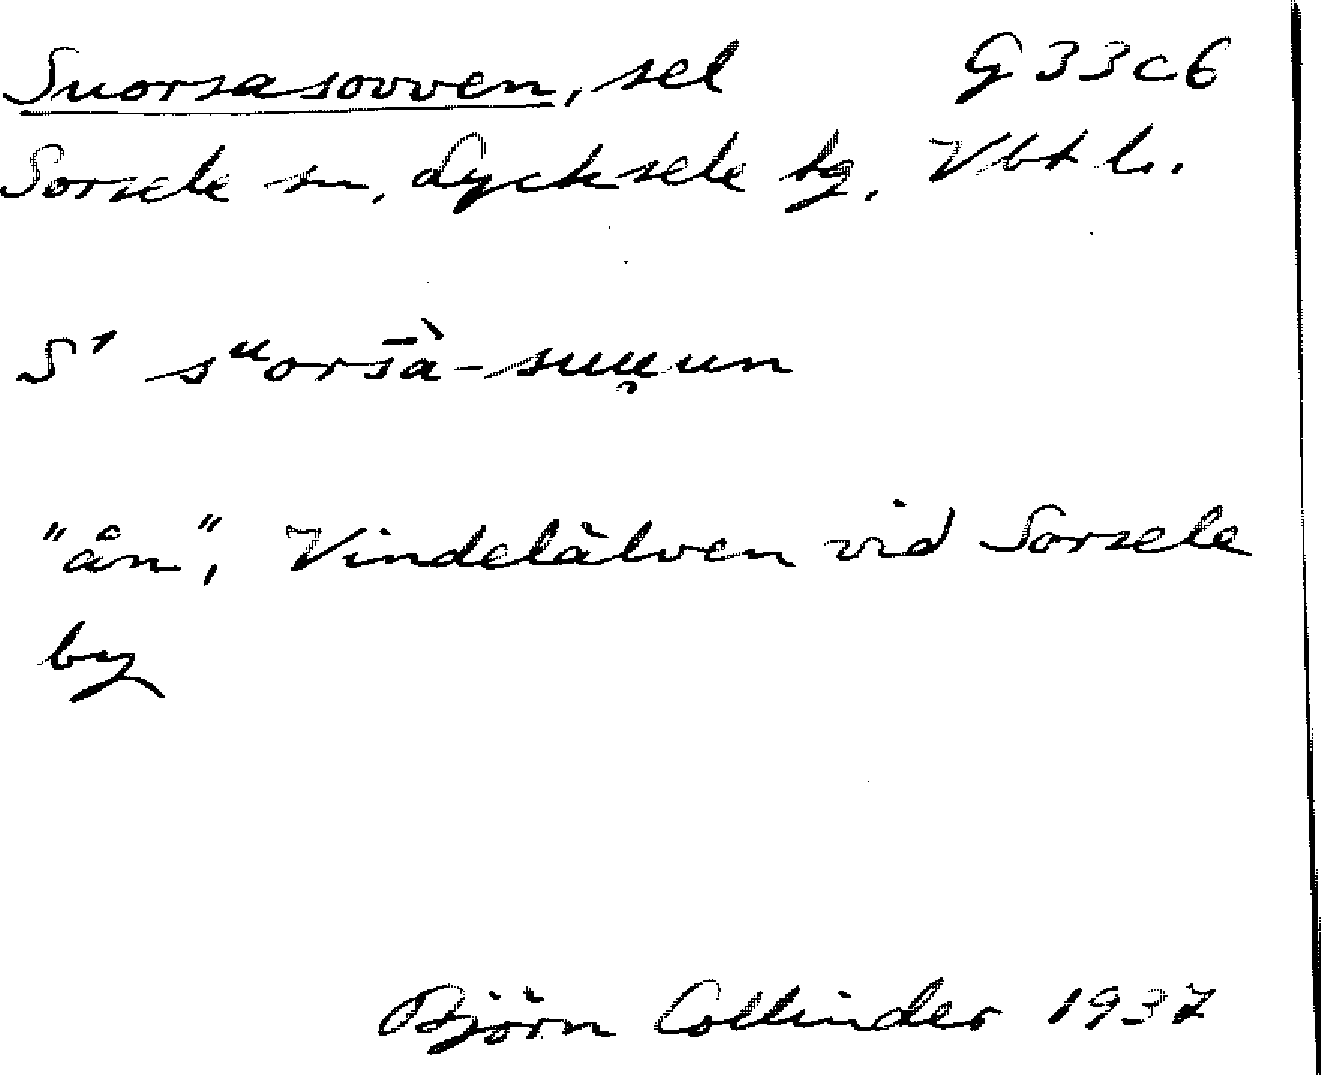 Suorsasovven, sel G33c6
Sorsele sn, Lycksele tg. Vbtl.
S' sᵘors̄ā̀-suu̯un
"ån", Vindelälven vid Sorsele
by
Björn Collinder 1937